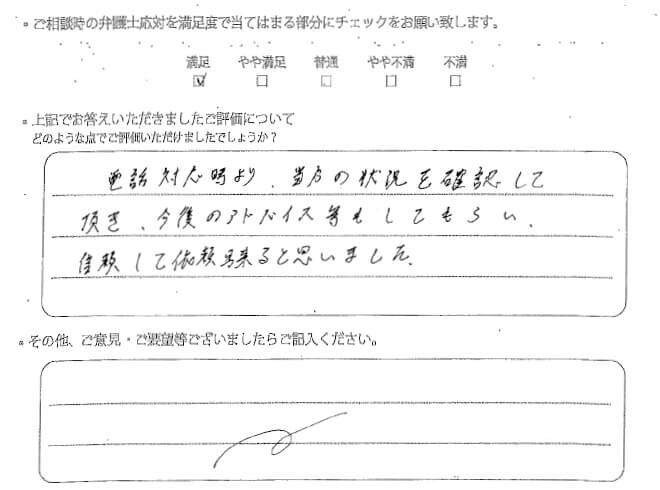 ・ご相談時の弁護士応対を満足度で当てはまる部分にチェックをお願い致します。
満足 やや満足 普通 やや不満 不満
・上記でお答えいただきましたご評価について
どのような点でご評価いただけましたでしょうか？
電話対応時より、当方の状況を確認して
頂き、今後のアドバイス等もしてもらい、
信頼して依頼出来ると思いました。
・その他、ご意見・ご要望等ございましたらご記入ください。